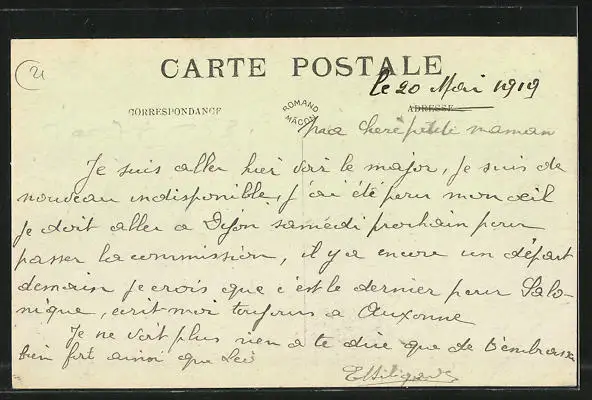 21
CARTE POSTALE
le 20 Mai 1919
CORRESPONDANCE
ROMAND
MÂCON
ADRESSE
ma cheré petite maman
Je suis aller hier voir le major, je suis de
nouveau indisponible, j'ai été pour mon œil
je doit aller a Dijon samedi prochain pour
passer la commission, il y a encore un départ
demain je crois que c'est le dernier pour Salo-
nique, ecrit-moi toujours a Auxonne
Je ne voit plus rien a te dire que de t'embrasser
bien fort ainsi que